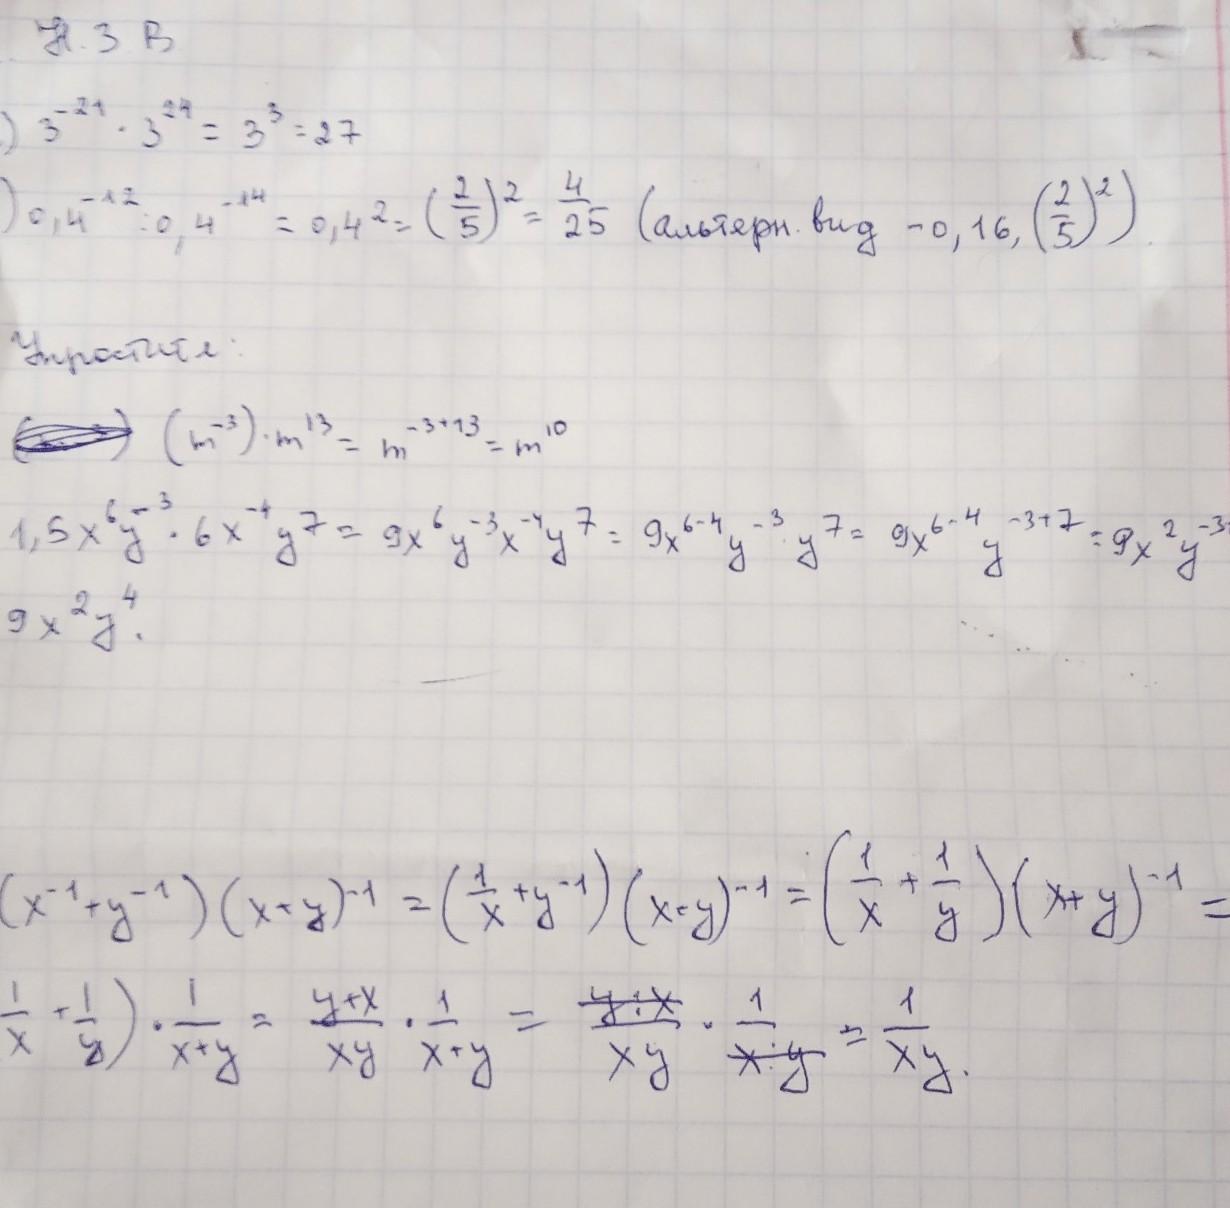 Н. 3 В
) 3⁻²¹ · 3²⁴ = 3³ = 27
) 0,4⁻¹² : 0,4⁻¹⁴ = 0,4² = (2/5)² = 4/25 (альтерн. вид - 0,16, (2/5)²)
Упростите:
(m⁻³) · m¹³ = m⁻³⁺¹³ = m¹⁰
1,5x⁶y⁻³ · 6x⁻⁴y⁷ = 9x⁶y⁻³x⁻⁴y⁷ = 9x⁶⁻⁴y⁻³ · y⁷ = 9x⁶⁻⁴y⁻³⁺⁷ = 9x²y⁻³
9x²y⁴.
(x⁻¹+y⁻¹)(x+y)⁻¹ = (1/x + y⁻¹)(x+y)⁻¹ = (1/x + 1/y)(x+y)⁻¹ =
1/x + 1/y) · 1/(x+y) = (y+x)/(xy) · 1/(x+y) = (y+x)/(xy) · 1/(x+y) = 1/(xy).